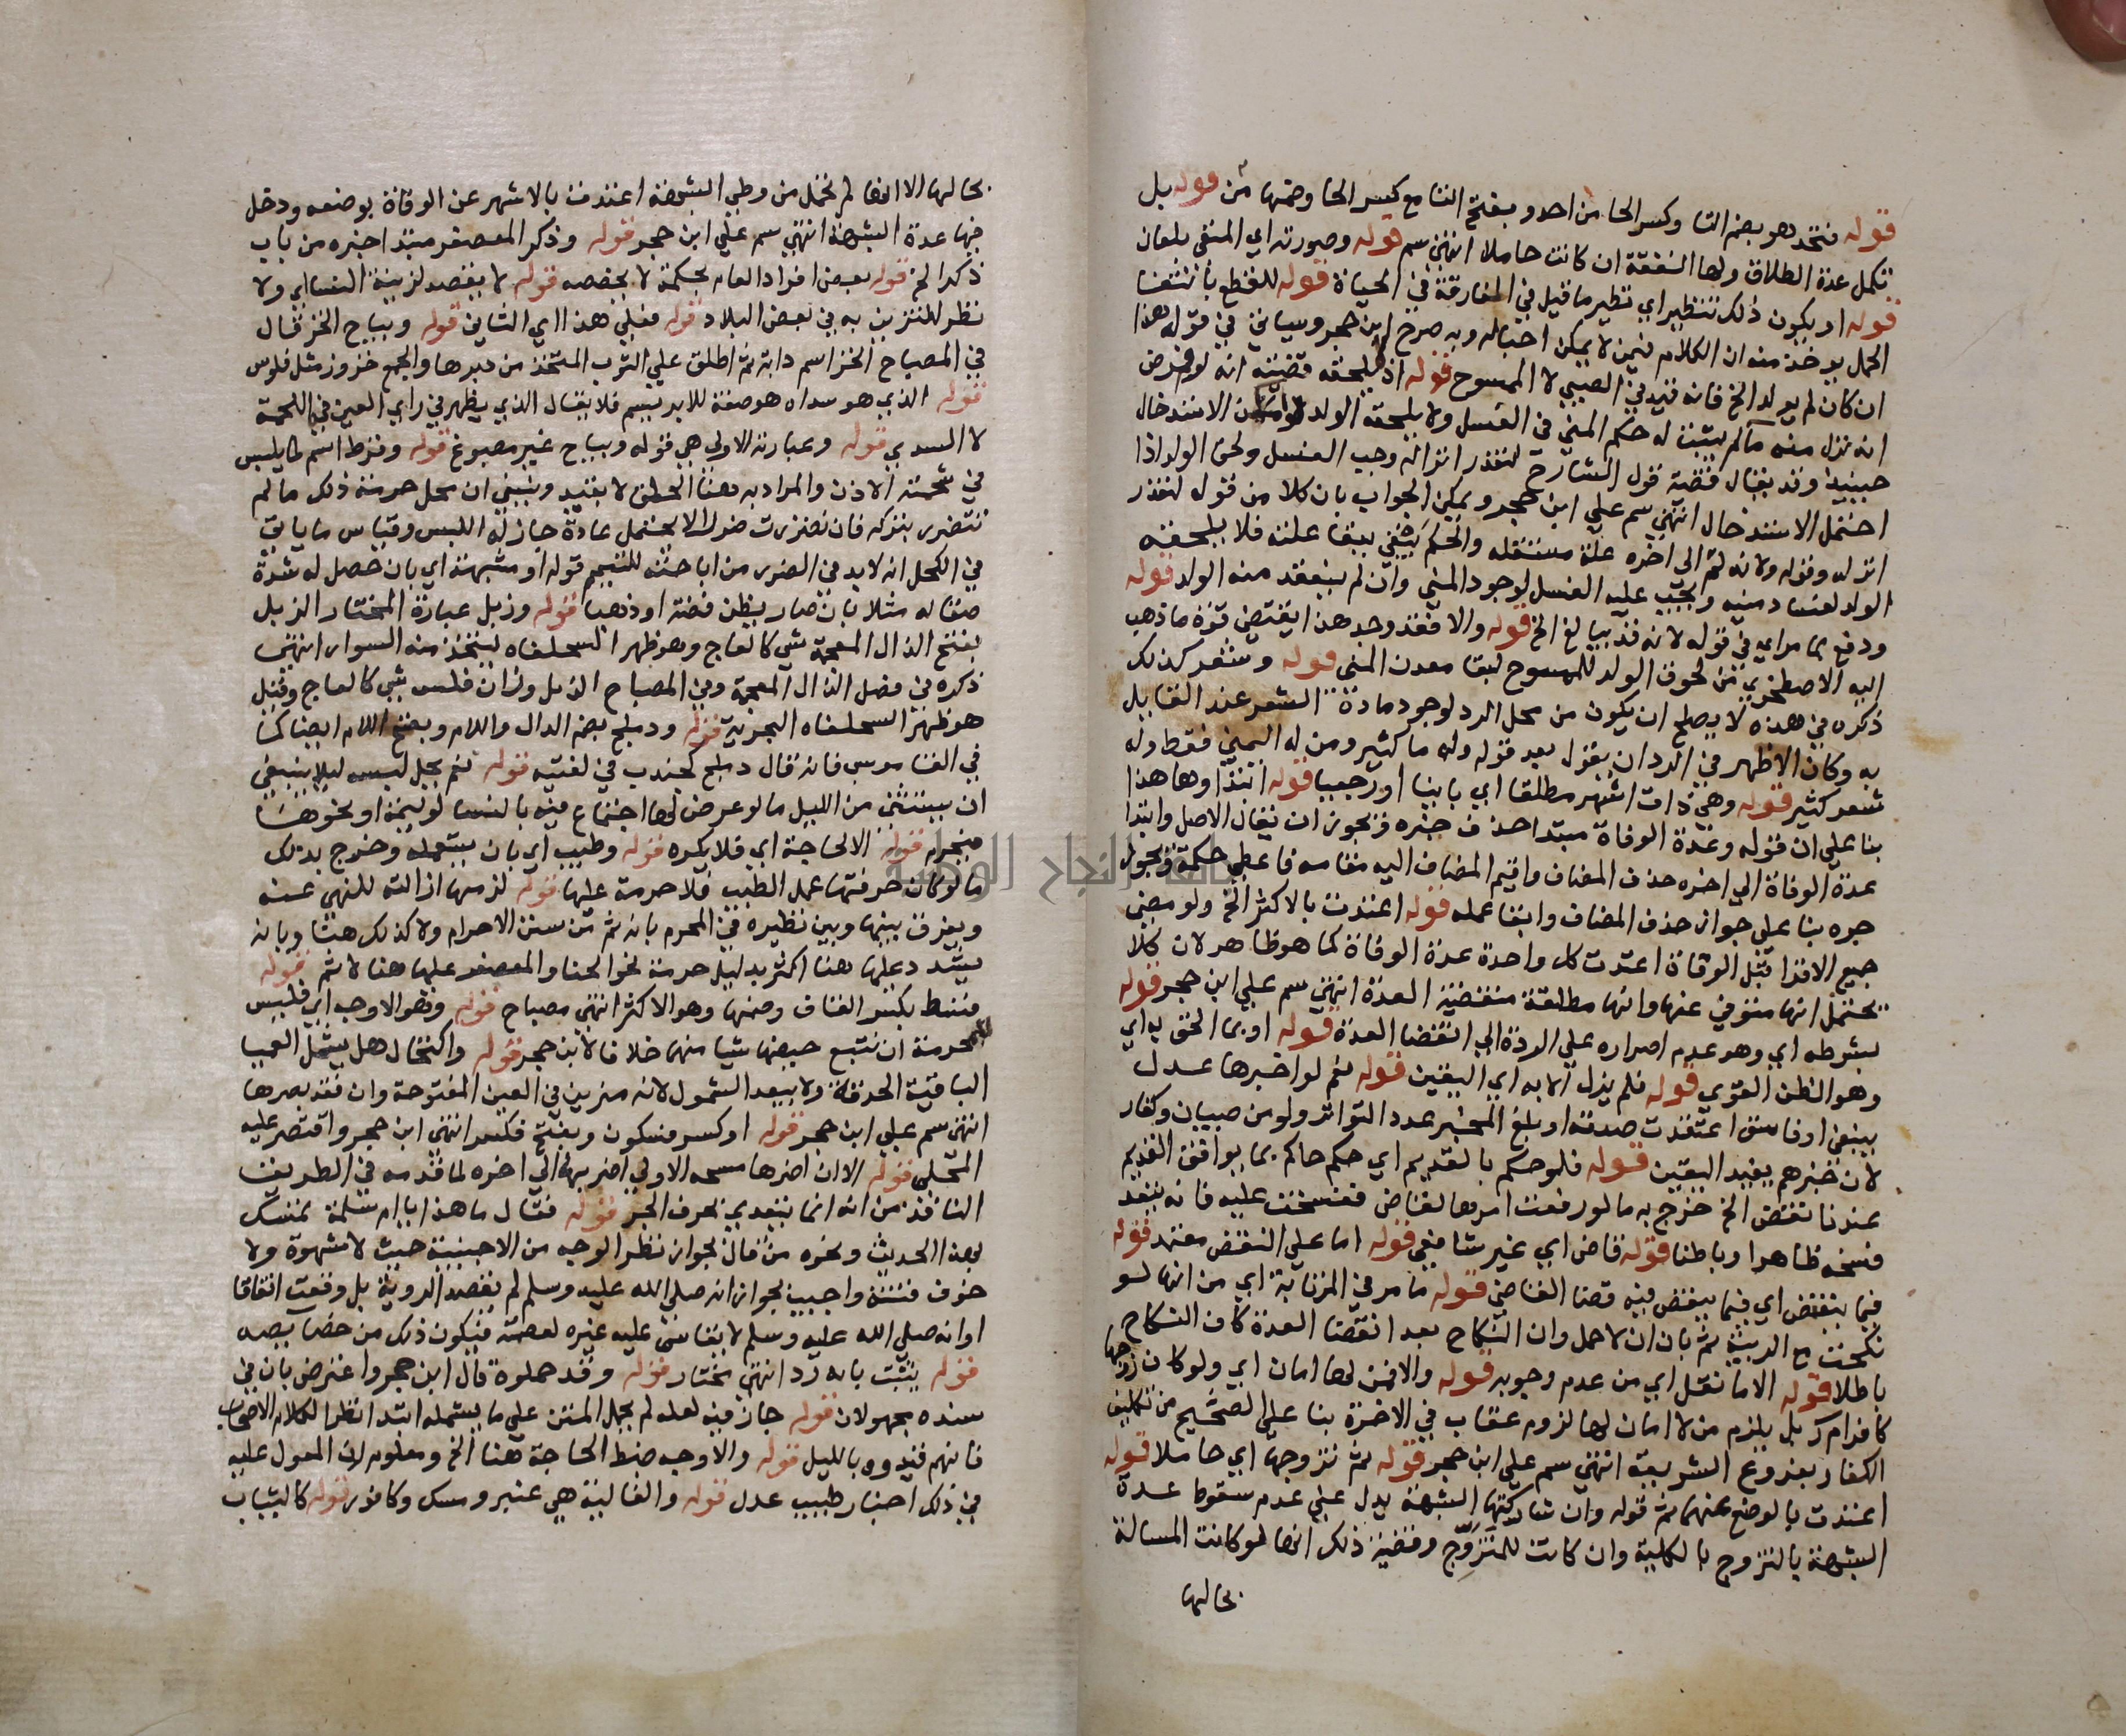 قوله فتحد هو بضم التا وكسر الحا من احد و بفتح التا مع كسر الحا وضمها من قوله بل
تكمل عدة الطلاق ولها النفقة ان كانت حاملا انتهى سم قوله وصورته اي المنفى بلعان
قوله او يكون ذلك تنظير اي نظير ما قيل في المفارقة في الحياة قوله للقطع بانتفا
الحمل يوخذ منه ان الكلام فيمن لا يمكن احباله وبه صرح ابن حجر وسياتي في قوله هذا
ان كان لم يولد الخ فانه قيد في الصبي لا الممسوح قوله اذ لا يلحقه قضيته انه لو فرض
انه نزل منه ما لم يثبت له حكم المني في الغسل ولا يلحقه الولد الاستدخال
حينيذ وقد يقال قضية قول الشارح لتعذر انزاله وجب الغسل ولحق الولد اذا
احتمل الاستدخال انتهى سم على ابن حجر ويمكن الجواب بان كلا من قوله لتعذر
انزاله وقوله ولانه لم الى اخره علة مستقله والحكم يبقى ببقا علته فلا يلحقه
الولد لفساد منيه ويجب عليه الغسل لوجود المني وان لم ينعقد منه الولد قوله
ودفع بما مر اي في قوله لانه قد يبالغ الخ قوله والا فقد وجد هذا يقتضي قوة ما ذهب
اليه الاصطخري من لحوق الولد للممسوح لبقا معدن المنى قوله وشعر كذلك
ذكره في هذه لا يصلح ان يكون من محل الرد لوجود مادة الشعر عند القايل
به وكان الاظهر في الرد ان يقول بعد قوله وله ما كثير ومن له اليمني فقط وله
شعر كثير قوله وهي ذات اشهر مطلقا اي باينا او رجعيا قوله ابتدا وها هذا
بنا على ان قوله وعدة الوفاة مبتدا حذف خبره فيجوز ان يقال الاصل وابتدا
عدة الوفاة الى اخره حذف المضاف واقيم المضاف اليه مقامه فاعطي حكمه ويجوز
جره بنا على جواز حذف المضاف وابقا عمله قوله اعتدت بالاكثر الخ ولو مضى
جميع الاقرا قبل الوفاة اعتدت كل واحدة عدة الوفاة كما هو ظاهر لان كلا
يحتمل انها متوفي عنها وانها مطلقة منقضية العدة انتهى سم على ابن حجر قوله
بشرطه اي وهو عدم اصراره على الردة الى انقضا العدة قوله او بما الحق به اي
وهو الظن القوي قوله فلم يزل الا به اي اليقين قوله نعم لو اخبرها عدل
ينبغي او فاسق اعتقدت صدقه او بلغ المخبر عدد التواتر ولو من صبيان وكفار
لان خبرهم يفيد اليقين قوله فلو حكم بالقديم اي حكم حاكم بما يوافق القديم
عندنا نقض الخ خرج به ما لو رفعت امرها لقاض ففسخت عليه فانه ينفذ
فسخه ظاهرا وباطنا قوله قاض اي غير شافعي قوله اما على النقض معتمد قوله
فيما ينقض اي فيما ينقض فيه قضا القاضي قوله ما مر في المرتابة اي من انها لو
نكحت مع الريبة ثم بان ان لا حمل وان النكاح بعد انقضا العدة كان النكاح
باطلا قوله الا ما نقل اي من عدم وجوبه قوله والا فمن لها امان اي ولو كان زوجها
كافرا م ر بل يلزم من لا امان لها لزوم عقاب في الاخرة بنا على الصحيح من تكليف
الكفار بفروع الشريعة انتهى سم على ابن حجر قوله ثم تزوجها اي حاملا قوله
اعتدت بالوضع عنهما ثم قوله وان شاركتها الشبهة يدل على عدم سقوط عدة
الشبهة بالتزوج بالكلية وان كانت للمتزوج وقضية ذلك انها لو كانت المسالة
بحالها
بحالها الا انها لم تحمل من وطي الشبهة اعتدت بالاشهر عن الوفاة بوضعه ودخل
فيها عدة الشبهة انتهى سم على ابن حجر قوله وذكر المعصفر مبتدا خبره من باب
ذكر الخ قوله بعض افراد العام بحكمه لا يخصصه قوله لا يقصد لزينة النسا اي ولا
نظر للتزين به في بعض البلاد قوله فعلى هذا اي الثاني قوله ويباح الخز قال
في المصباح الخز اسم دابة ثم اطلق على الثوب المتخذ من وبرها والجمع خزوز مثل فلوس
قوله الذي هو سداه هو صفة للابريسم فلا يقال الذي يظهر في راي العين في اللحمة
لا السدي قوله وعبارته الاولى هي قوله ويباح غير مصبوغ قوله وقرط اسم لما يلبس
في شحمة الاذن والمراد به هنا الحلق لا بقيد وينبغي ان محل حرمة ذلك ما لم
تتضرر بتركه فان تضررت ضررا لا يحتمل عادة جاز له اللبس وقياس ما ياتي
في الكحل انه لا بد في الضرر من اباحته للتيمم قوله او مشبهته اي بان حصل له شدة
صقاله مثلا بان صار يظن فضة او ذهبا قوله وذبل عبارة المختار الذبل
بفتح الذال المعجمة شي كالعاج وهو ظهر السلحفاه يتخذ منه السوار انتهى
ذكره في فصل الذال المعجمة وفي المصباح الذبل وزان فلس شي كالعاج وقيل
هو ظهر السلحفاه البحرية قوله ودملج بضم الدال واللام وبفتح اللام ايضا كما
في القاموس فانه قال دملج كجندب في لغتيه قوله نعم يحل لبسه ليلا ينبغي
ان يستثنى من الليل ما لو عرض لها اجتماع فيه بالنسا لوليمة او نحوها
فيحرم قوله الا لحاجة اي فلا يكره قوله وطيب اي بان يستعمله وخرج بذلك
ما لو كان حرفتها عمل الطيب فلا حرمة عليها قوله لزمها ازالته للنهي عنه
ويفرق بينها وبين نظيره في المحرم بانه ثم من سنن الاحرام ولا كذلك هنا وبانه
يشدد عليها هنا اكثر بدليل حرمة نحو الحنا والمعصفر عليها هنا لا ثم قوله
قسط بكسر القاف وضمها وهو الاكثر انتهى مصباح قوله وهو الاوجه اي فليس
للمحرمة ان تتبع حيضها شيا منهما خلافا لابن حجر قوله واكتحال هل يشمل العميا
الباقية الحدقة ولا يبعد الشمول لانه مزين في العين المفتوحة وان فقد بصرها
انتهى سم على ابن حجر قوله او كسر فسكون وبفتح فكسر انتهى ابن حجر واقتصر عليه
المحلي قوله الا ان اضرها مسحه الاولى اضر بها الى اخره لما قدمه في الطريق
النافذ من انه انما يتعدي بحرف الجر قوله فقال ما هذا يا ام سلمة تمسك
بهذا الحديث ونحوه من قال بجواز نظر الوجه من الاجنبية حيث لا شهوة ولا
خوف فتنة واجيب بجواز انه صلى الله عليه وسلم لم يقصد الروية بل وقعت اتفاقا
او انه صلى الله عليه وسلم لا يقاس عليه غيره لعصمته فيكون ذلك من خصايصه
قوله يثبت بابه رد انتهى مختار قوله وقد حملوه قال ابن حجر واعترض بان في
سنده مجهولان قوله جاز فيه لعله لم يحمل المتن على ما يشمله ابتدا نظرا لكلام الاصحاب
فانهم قيدوه بالليل قوله والاوجه ضبط الحاجة هنا الخ ومعلوم ان المعول عليه
في ذلك اخبار طبيب عدل قوله والغالية هي عنبر ومسك وكافور قوله كالثياب
جامعة النجاح الوطنية